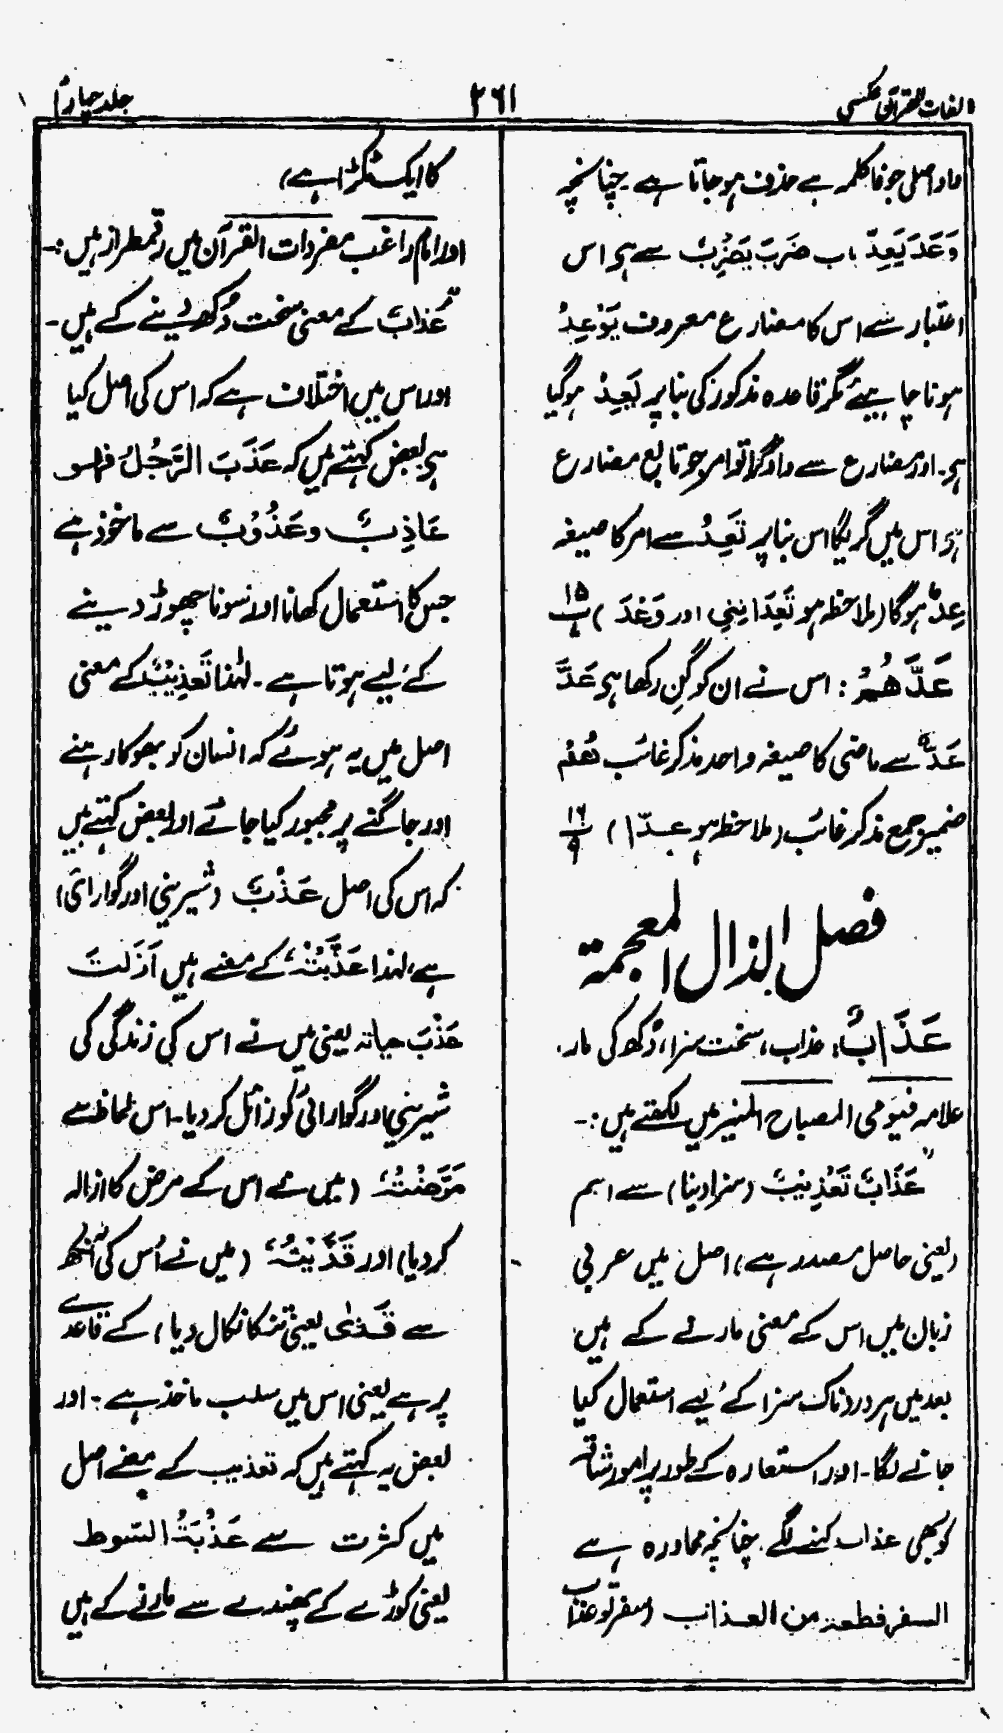 لغات القرآن عکسی
۲۶۱
جلد چہارم
واو اصلی جو فا کلمہ ہے حذف ہو جاتا ہے۔ چنانچہ
وَعَدَ یَعِدُ باب ضَرَبَ یَضْرِبُ سے ہی اس
اعتبار سے اس کا مضارع معروف یَوْعِدُ
ہونا چاہیئے مگر قاعدہ مذکور کی بنا پر یَعِدُ ہو گیا
ہی۔ اور مضارع سے واو گرا تو امر جو تابع مضارع
ہی اس میں گریگا اس بنا پر تَعِدُ سے امر کا صیغہ
عِدْ ہوگا (ملاحظہ ہو تَعِدَانِنِی اور وَعْدَ) ۱۵
عَدَّهُمْ : اس نے ان کو گن رکھا ہی عَدَّ
عَدٌّ سے ماضی کا صیغہ واحد مذکر غائب هُمْ
ضمیر جمع مذکر غائب (ملاحظہ ہو عدّا) ۱۶ ۹
فصل الذال المعجمة
عَذَابٌ: عذاب، سخت سزا، دُکھ کی مار۔
علامہ فیومی المصباح المنیر میں لکھتے ہیں :۔
"عَذَابٌ تَعْذِیْبٌ (سزا دینا) سے اسم
(یعنی حاصل مصدر ہے) اصل میں عربی
زبان میں اس کے معنی مارنے کے ہیں
بعد میں ہر دردناک سزا کے لیے استعمال کیا
جانے لگا۔ اور استعارہ کے طور پر امور شاقہ
کو بھی عذاب کہنے لگے۔ چنانچہ محاورہ ہے
السفر قطعة من العذاب (سفر تو عذاب
کا ایک ٹکڑا ہے)
اور امام راغب مفردات القرآن میں رقمطراز ہیں :۔
"عَذَابٌ کے معنی سخت دُکھ دینے کے ہیں۔
اور اس میں اختلاف ہے کہ اس کی اصل کیا
ہی بعض کہتے ہیں کہ عَذَبَ الرَّجُلُ فهو
عَاذِبٌ وعَذُوْبٌ سے ماخوذ ہے
جس کا استعمال کھانا اور سونا چھوڑ دینے
کے لیے ہوتا ہے۔ لہٰذا تَعْذِیْبٌ کے معنی
اصل میں یہ ہوئے کہ انسان کو بھوکا رہنے
اور جاگنے پر مجبور کیا جائے اور بعض کہتے ہیں
کہ اس کی اصل عَذْبٌ (شیرینی اور گوارائی)
ہے، لہٰذا عَذَّبْتُهٗ کے معنے ہیں اَزَلْتُ
عَذْبَ حیاتہ یعنی میں نے اس کی زندگی کی
شیرینی اور گوارائی کو زائل کر دیا۔ اس لحاظ سے
مَرَّضْتُهٗ (میں نے اس کے مرض کا ازالہ
کر دیا) اور قَذَّیْتُهٗ (میں نے اُس کی آنکھ
سے قَذٰی یعنی تنکا نکال دیا) کے قاعدے
پر ہے یعنی اس میں سلب ماخذ ہے :۔ اور
بعض یہ کہتے ہیں کہ تعذیب کے معنے اصل
میں کثرت سے عَذْبَةُ السّوط
یعنی کوڑے کے پھندے سے مارنے کے ہیں